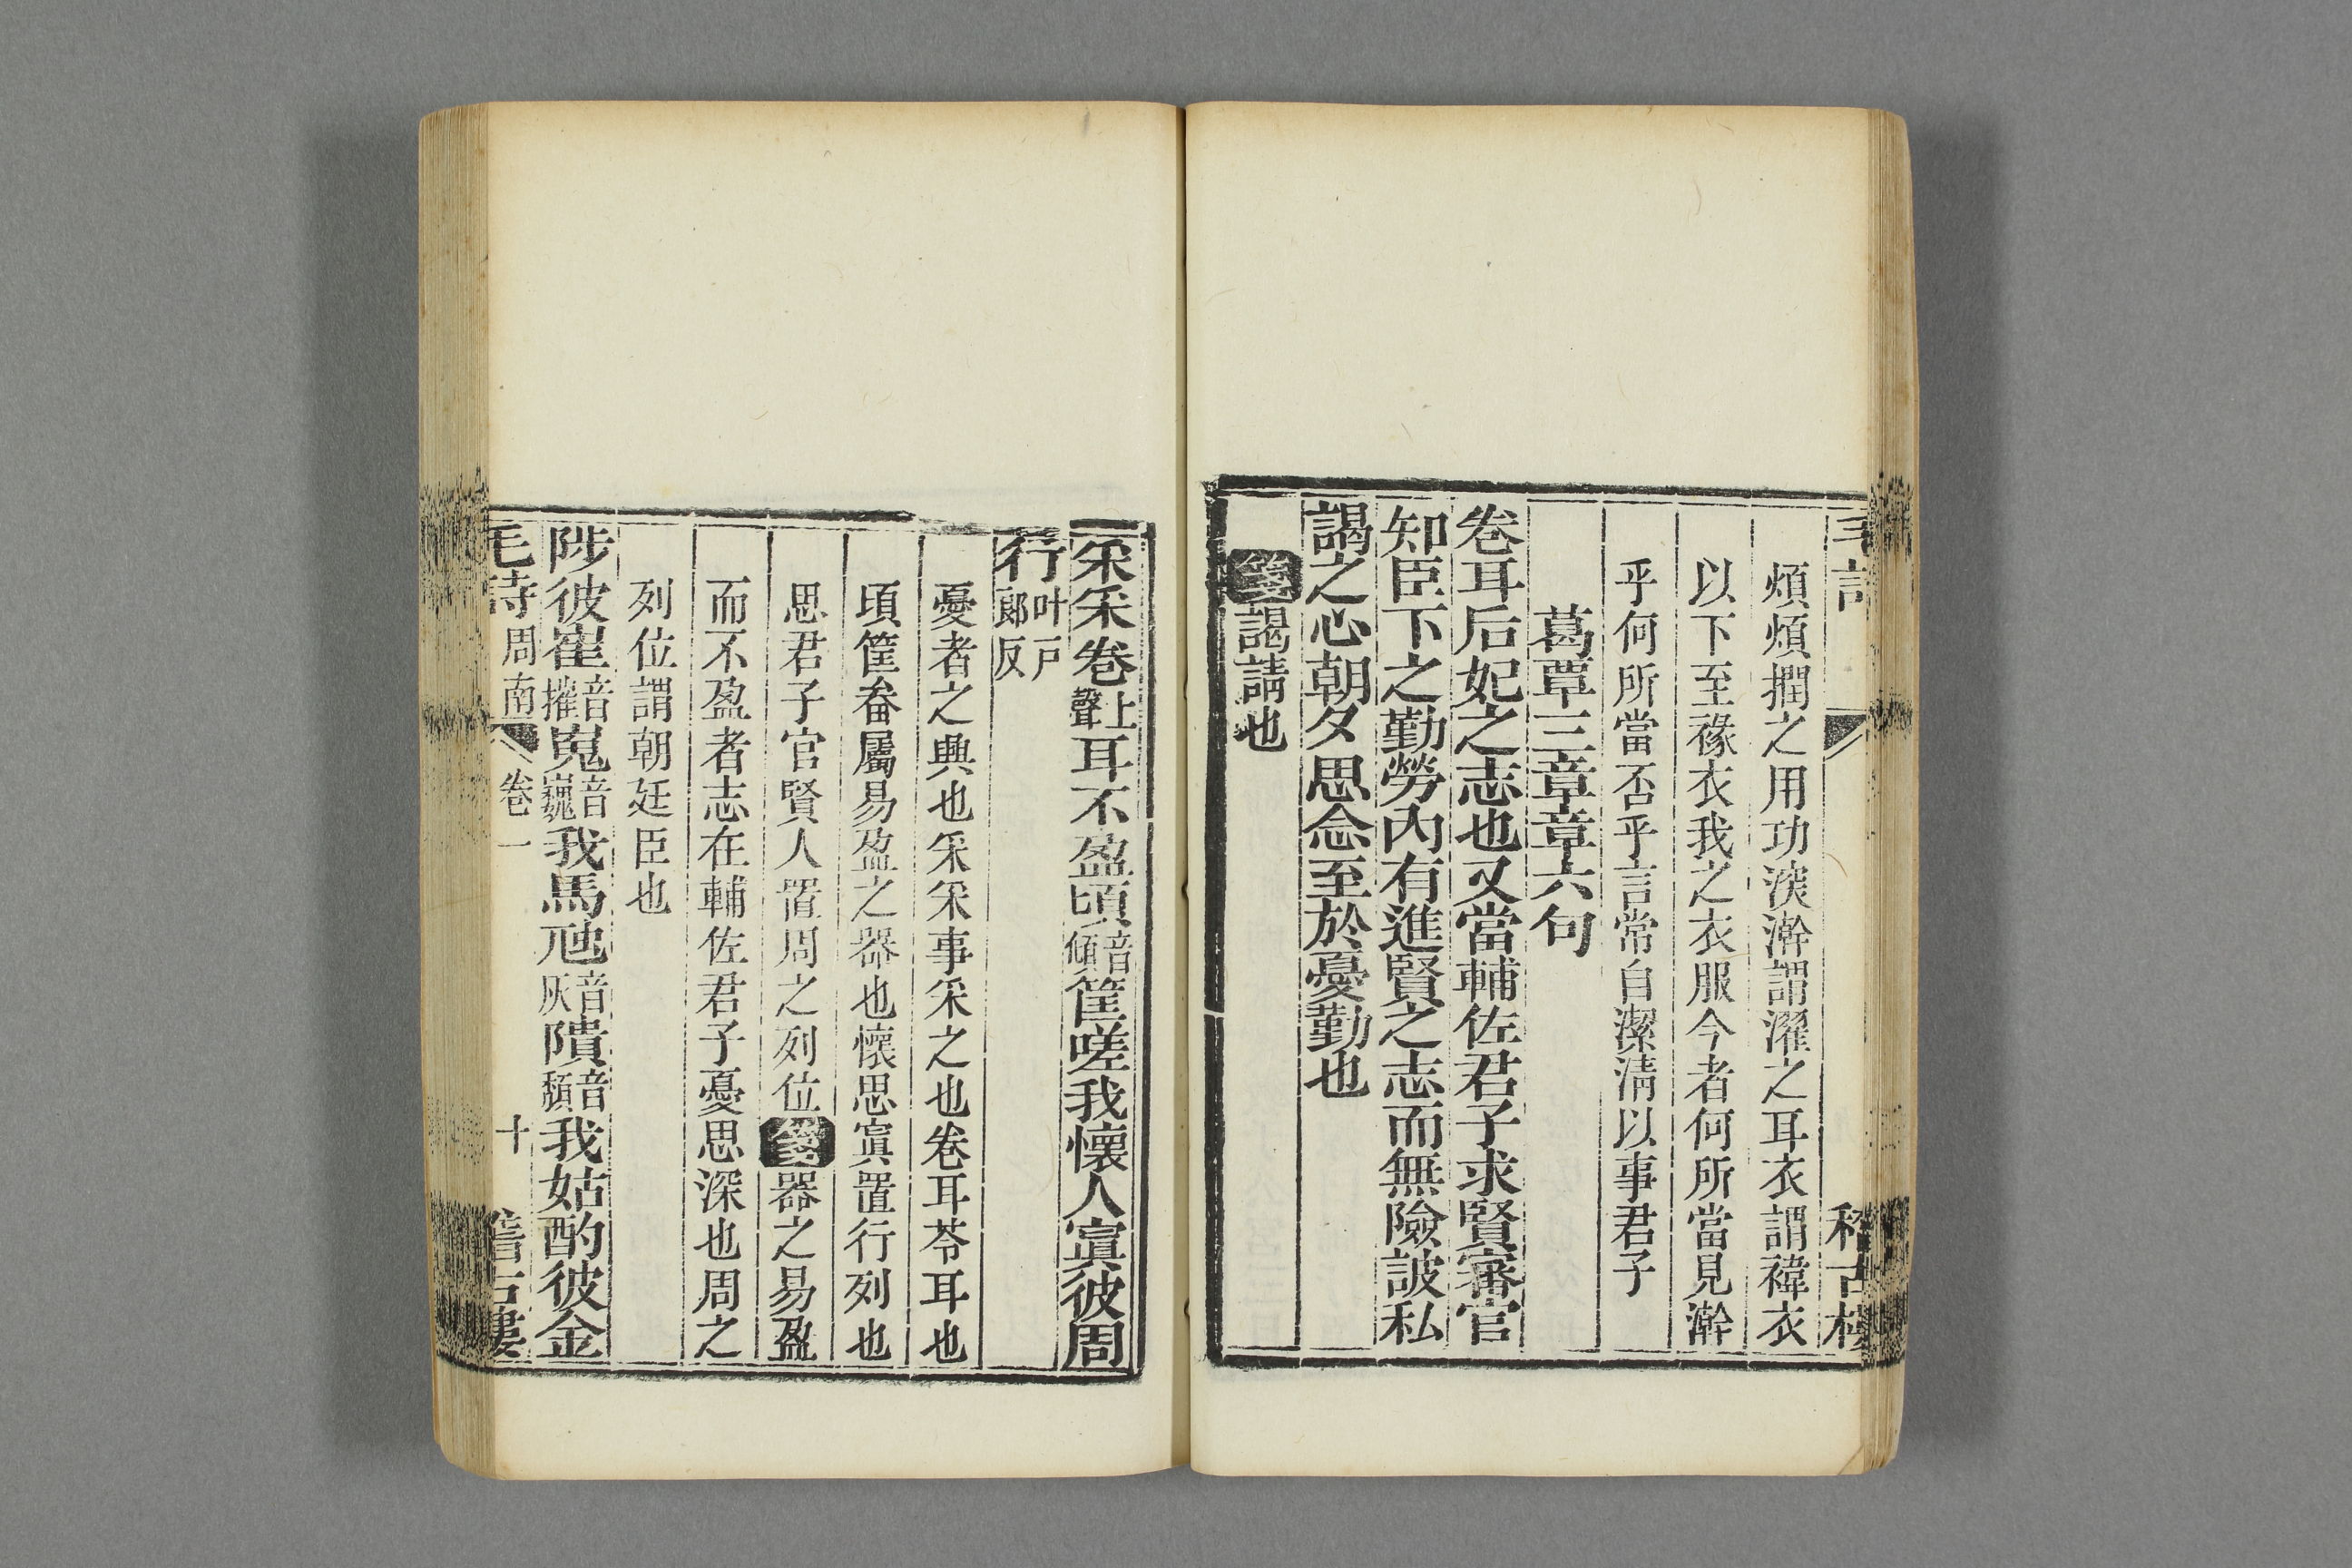 煩煩撋之用功深澣謂濯之耳衣謂褘衣
以下至褖衣我之衣服今者何所當見澣
乎何所當否乎言常自潔清以事君子
葛覃三章章六句
卷耳后妃之志也又當輔佐君子求賢審官
知臣下之勤勞內有進賢之志而無險詖私
謁之心朝夕思念至於憂勤也
箋謁請也
采采卷上聲耳不盈頃音傾筐嗟我懷人寘彼周
行叶戶郞反
憂者之興也采采事采之也卷耳苓耳也
頃筐畚屬易盈之器也懷思寘置行列也
思君子官賢人置周之列位箋器之易盈
而不盈者志在輔佐君子憂思深也周之
列位謂朝廷臣也
陟彼崔音摧嵬音巍我馬虺音灰隤音頽我姑酌彼金
毛詩周南 卷一 十